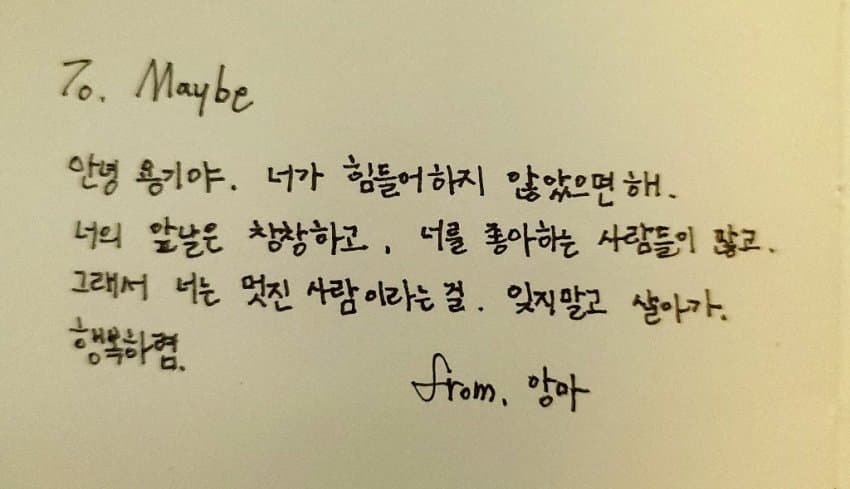 To. Maybe
안녕 용기야. 너가 힘들어하지 않았으면 해.
너의 앞날은 창창하고, 너를 좋아하는 사람들이 많고.
그래서 너는 멋진 사람이라는 걸. 잊지말고 살아가.
행복하렴.
from. 앙마